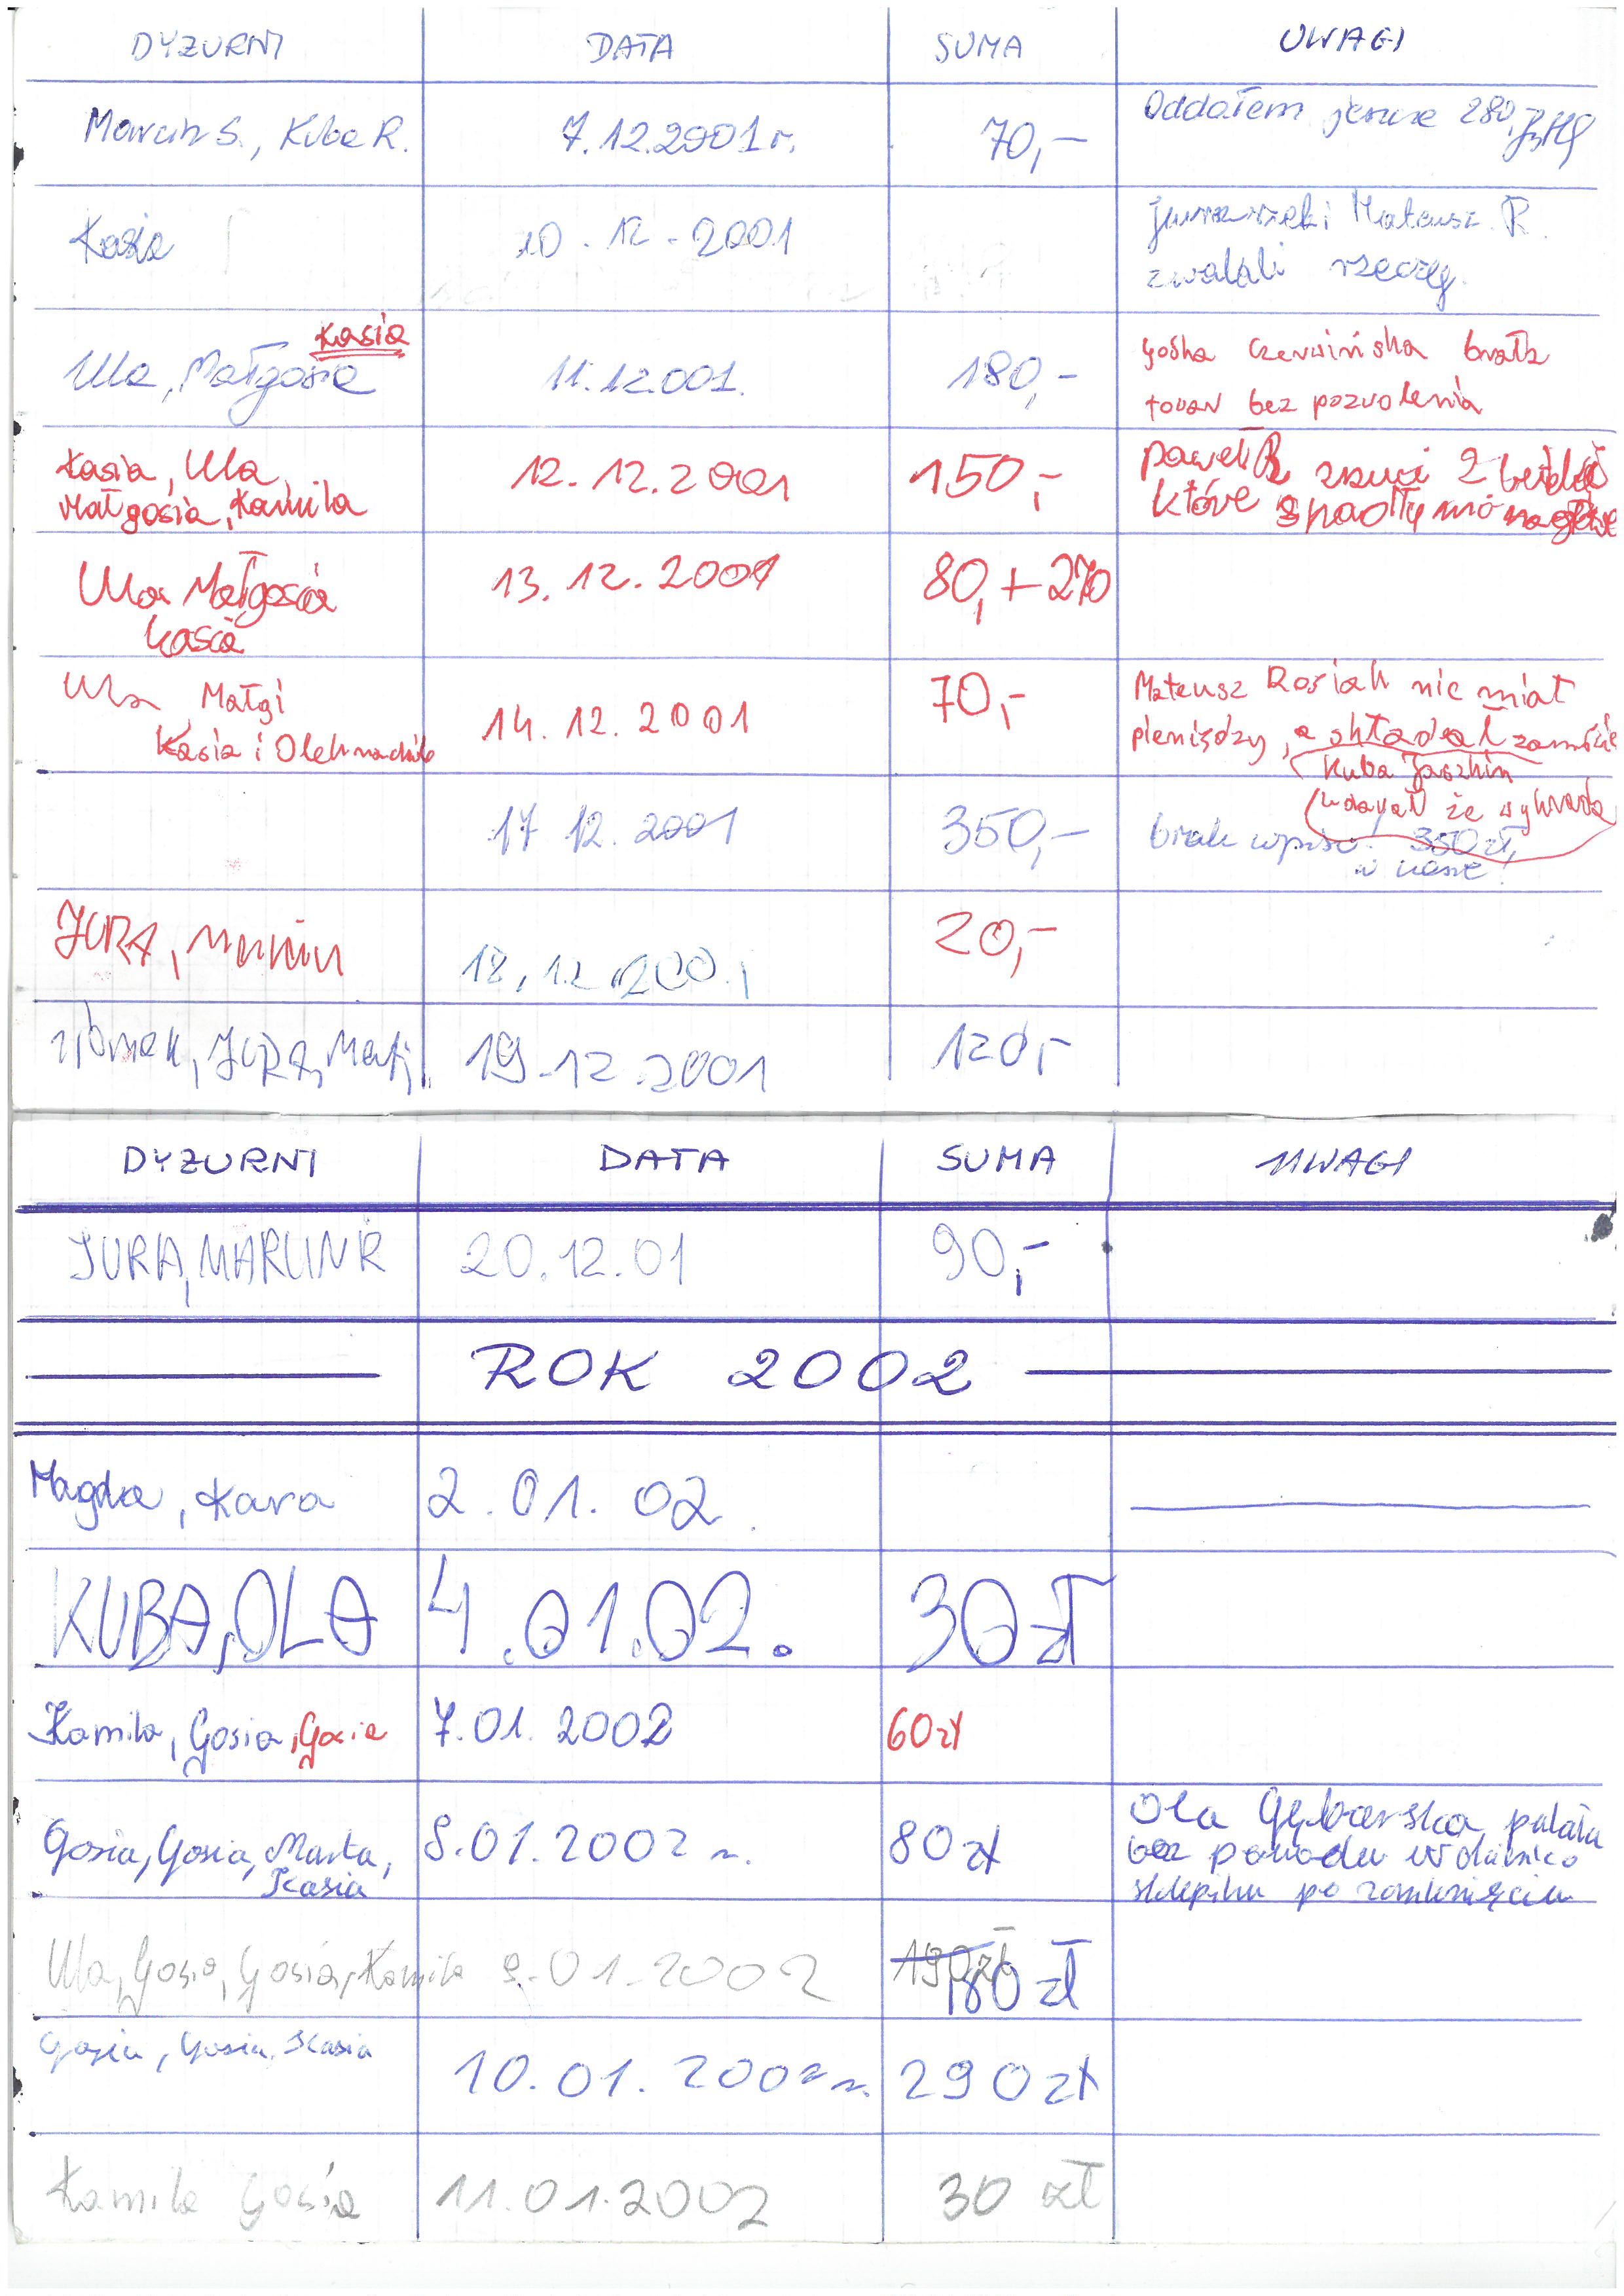 DYZURNI DATA SUMA UWAGI
Marcin S., Kuba R. 7.12.2001 r. 70,- Oddałem jeszcze 280,
Kasia 10-12-2001 Mateusz R.
rzeczy.
Kasia
Ula, Małgosia 11.12.001. 180,- Gośka Czerwińska brała
towar bez pozwolenia
Kasia, Ula, 12.12.2001 150,- Paweł R 2
Małgosia, Kamila które spadły mi na głowę
Ula Małgosia 13.12.2001 80,+270
Kasia
Ula Małgi 14.12.2001 70,- Mateusz Rosiak nie miał
Kasia i pieniędzy, a składał
Kuba
udawał że
17 12.2001 350,- brak wpisu! 350 zł,
w kasie!
JURA, Marcin 18.12.2001 20,-
JURA, 19-12.2001 120,-
DYZURNI DATA SUMA UWAGI
JURA, MARCIN R 20.12.01 90,-
ROK 2002
Magda, Kara 2.01.02.
KUBA, OLA 4.01.02. 30 zł
Kamila, Gosia, Gosia 7.01.2002 60 zł
Gosia, Gosia, Marta, 8.01.2002 r. 80 zł Ola
Kasia bez powodu
sklepiku po zamknięciu
Ula, Gosia, Gosia, Kamila 9.01.2002 190 zł 180 zł
Gosia, Gosia, Kasia 10.01.2002 r. 290 zł
Kamila Gosia 11.01.2002 30 zł